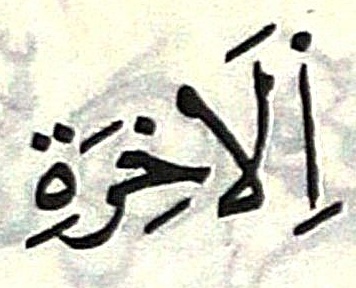 اِلَاخِرَةِ